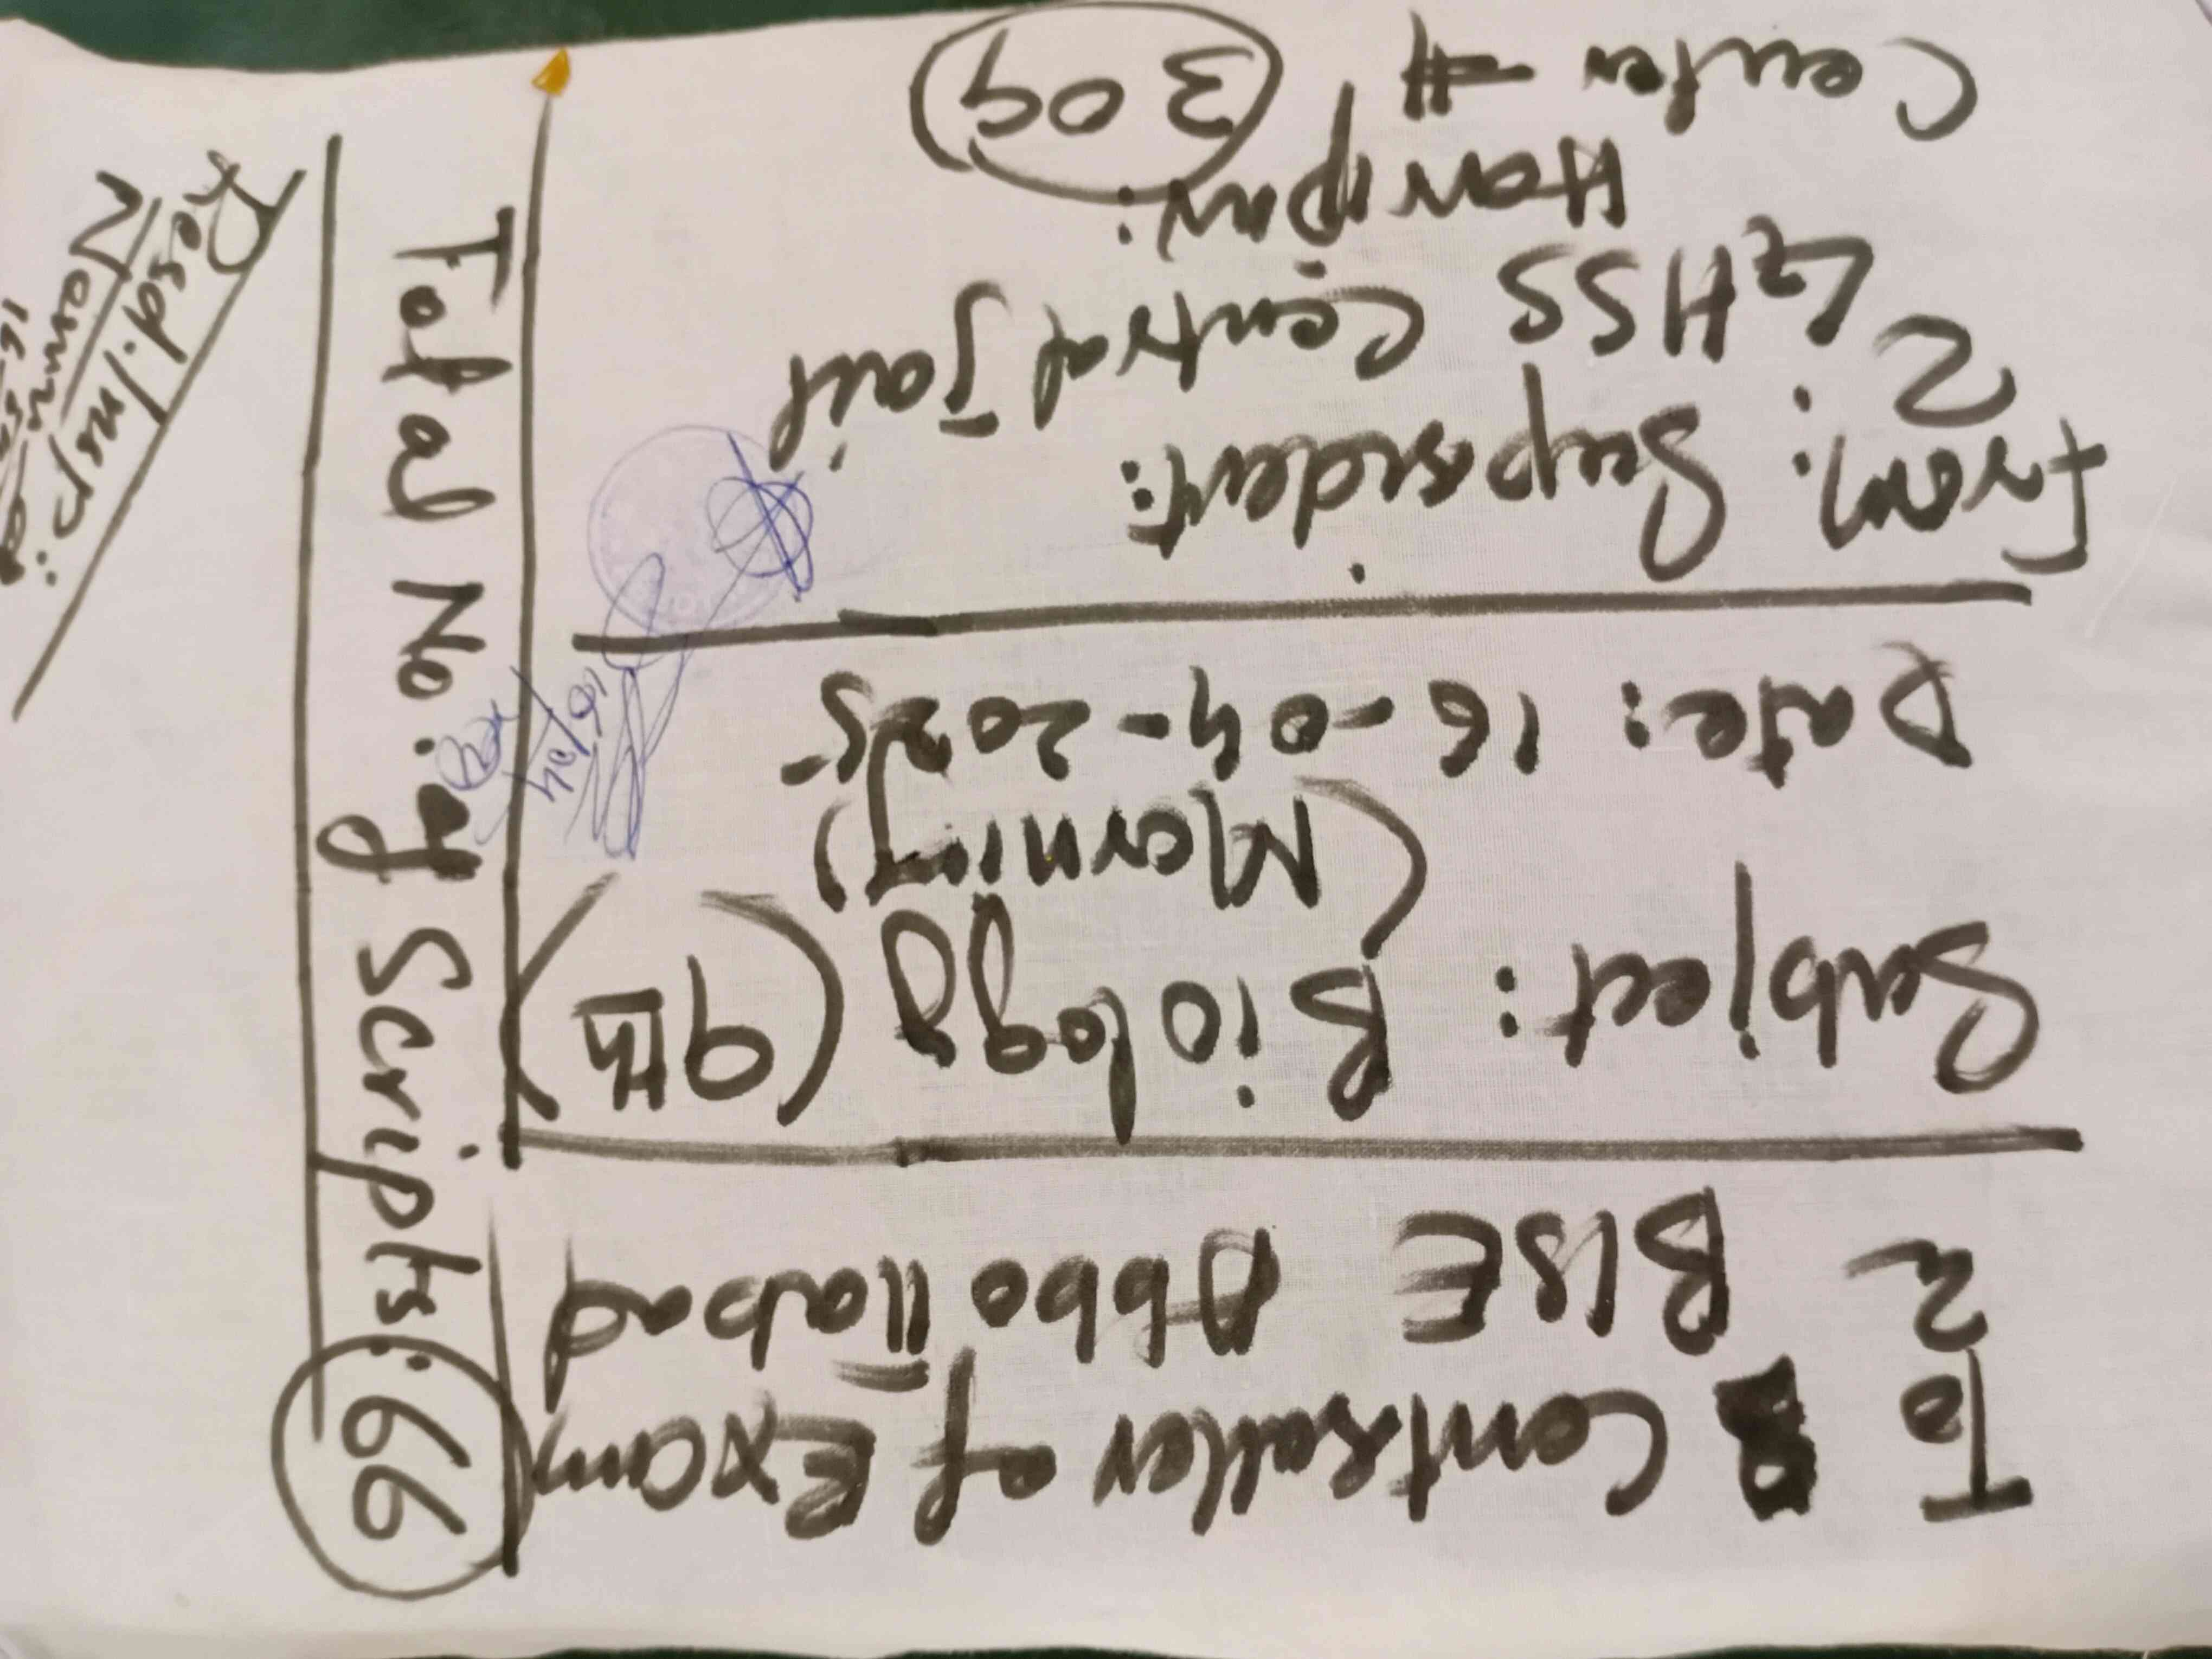 To Contsoller of Exam
BISE Abbottabad
Subject: Biology (9th)
(Morning)
Date: 16-04-2025
From: Supesident:
HSS Central Jail
Haripur:
Center # 309
Total No. of Scripts: 66
Resd. Insp:
16/04